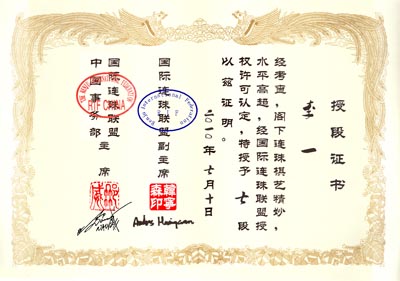 授段证书
李一
经考查，阁下连珠棋艺精妙，
水平高超，经国际连珠联盟授
权许可认定，特授予 七段
以兹证明。
二〇一〇年七月十日
国际连珠联盟副主席
Renju International Federation
国际连珠联盟
中国事务部主席
RIF CHINA